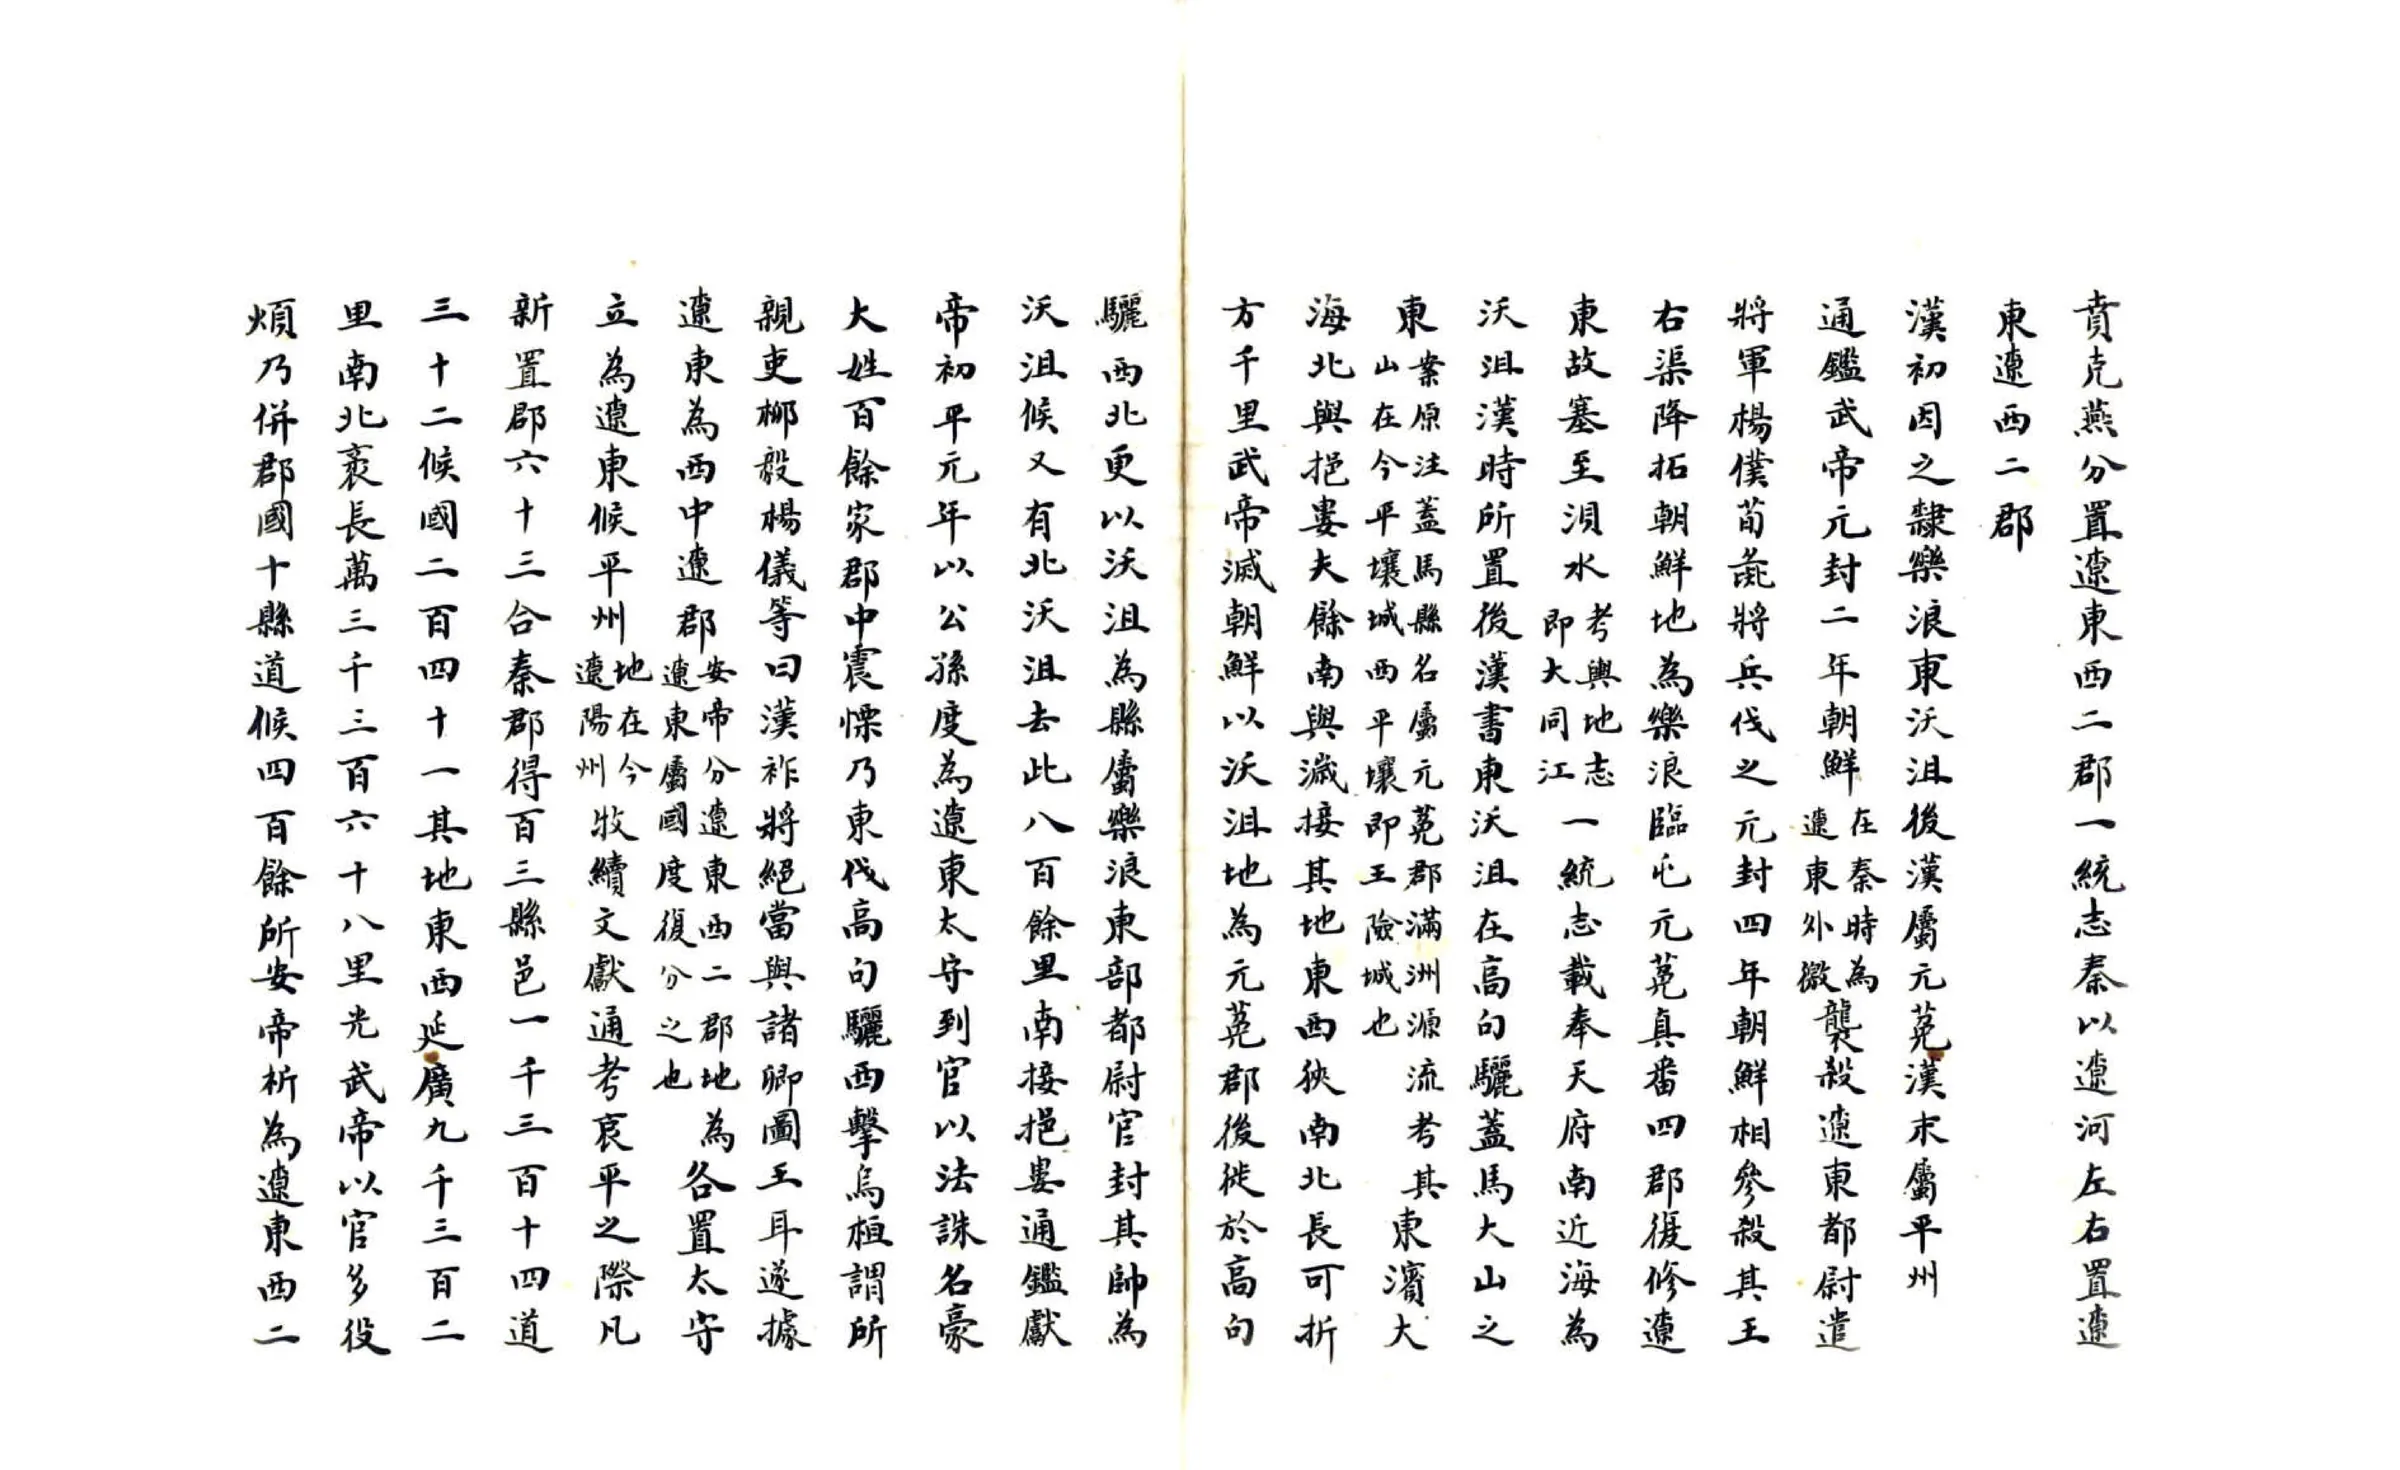 賁克燕分置遼東西二郡一統志秦以遼河左右置遼
東遼西二郡
漢初因之隸樂浪東沃沮後漢屬元菟漢末屬平州
通鑑武帝元封二年朝鮮在秦時為遼東外徼襲殺遼東都尉遣
將軍楊僕荀彘將兵伐之元封四年朝鮮相參殺其王
右渠降拓朝鮮地為樂浪臨屯元菟真番四郡復修遼
東故塞至浿水考輿地志即大同江一統志載奉天府南近海為
沃沮漢時所置後漢書東沃沮在高句驪蓋馬大山之
東案原注蓋馬縣名屬元菟郡滿洲源流考其山在今平壤城西平壤即王險城也東濱大
海北與挹婁夫餘南與濊接其地東西狹南北長可折
方千里武帝滅朝鮮以沃沮地為元菟郡後徙於高句
驪西北更以沃沮為縣屬樂浪東部都尉官封其帥為
沃沮候又有北沃沮去此八百餘里南接挹婁通鑑獻
帝初平元年以公孫度為遼東太守到官以法誅名豪
大姓百餘家郡中震慄乃東伐高句驪西擊烏桓謂所
親吏柳毅楊儀等曰漢祚將絕當與諸卿圖王耳遂據
遼東為西中遼郡安帝分遼東西二郡地為遼東屬國度復分之也各置太守
立為遼東候平州地在今遼陽州牧續文獻通考哀平之際凡
新置郡六十三合秦郡得百三縣邑一千三百十四道
三十二候國二百四十一其地東西延廣九千三百二
里南北袤長萬三千三百六十八里光武帝以官多役
煩乃併郡國十縣道候四百餘所安帝析為遼東西二